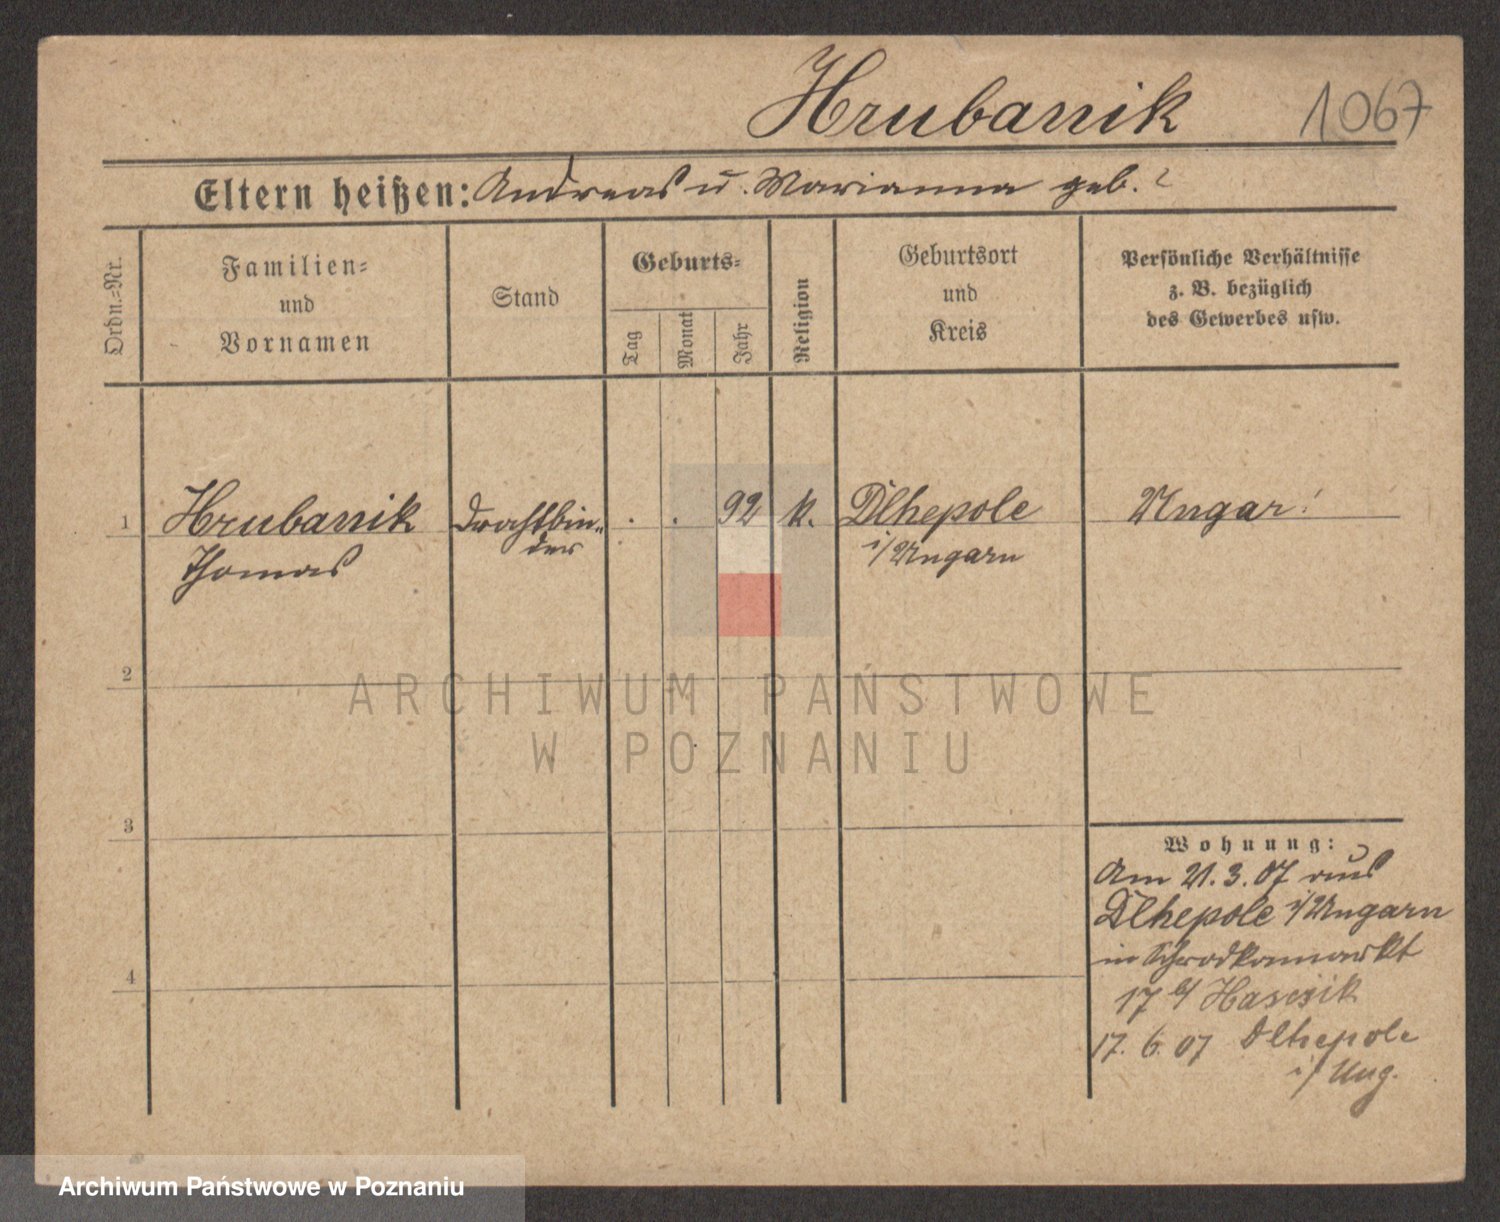 Hrubanik 1067
Eltern heißen: Andreas u. Marianna geb. ?
Ordn.=Nr.
Familien=
und
Vornamen
Stand
Geburts=
Tag
Monat
Jahr
Religion
Geburtsort
und
Kreis
Persönliche Verhältnisse
z. B. bezüglich
des Gewerbes usw.
1 Hrubanik Drahtbin= . . 92 k. Dlhepole Ungar!
Thomas der i/Ungarn
2
ARCHIWUM PAŃSTWOWE
W POZNANIU
3
Wohnung:
Am 21.3.07 aus
Dlhepole i/Ungarn
in Schrodkamarkt
4
17 b/ Hasczik
17. 6. 07 Dlhepole
i/ Ung.
Archiwum Państwowe w Poznaniu